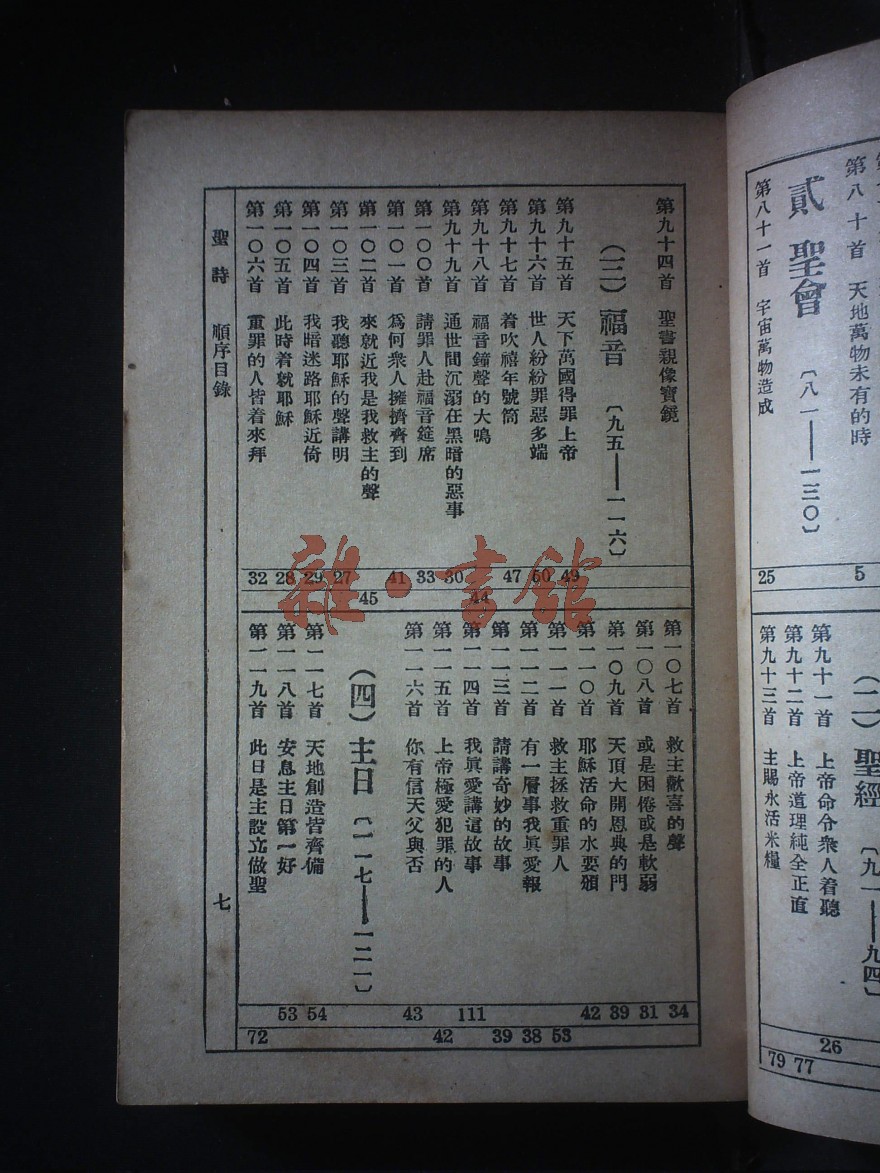 第八十首 天地萬物未有的時
貳 聖會 〔八一——一三〇〕
第八十一首 宇宙萬物造成
5
25
(二) 聖經 〔九一——九四〕
第九十一首 上帝命令衆人着聽
第九十二首 上帝道理純全正直
第九十三首 主賜永活米糧
26
79 77
第九十四首 聖書親像寶鏡
(三) 福音 〔九五——一一六〕
第九十五首 天下萬國得罪上帝
第九十六首 世人紛紛罪惡多端
第九十七首 着吹禧年號筒
第九十八首 福音鐘聲的大鳴
第九十九首 通世間沉溺在黑暗的惡事
第一〇〇首 請罪人赴福音筵席
第一〇一首 爲何衆人擁擠齊到
第一〇二首 來就近我是我救主的聲
第一〇三首 我聽耶穌的聲講明
第一〇四首 我暗迷路耶穌近倚
第一〇五首 此時着就耶穌
第一〇六首 重罪的人皆着來拜
32 28 29 27 41 33 30 47 50 49
45 44
第一〇七首 救主歡喜的聲
第一〇八首 或是困倦或是軟弱
第一〇九首 天頂大開恩典的門
第一一〇首 耶穌活命的水要頒
第一一一首 救主拯救重罪人
第一一二首 有一層事我眞愛報
第一一三首 請講奇妙的故事
第一一四首 我眞愛講這故事
第一一五首 上帝極愛犯罪的人
第一一六首 你有信天父與否
(四) 主日 〔一一七——一二一〕
第一一七首 天地創造皆齊備
第一一八首 安息主日第一好
第一一九首 此日是主設立做聖
53 54 43 111 42 39 31 34
72 42 39 38 53
聖詩 順序目錄
七
雜·書館